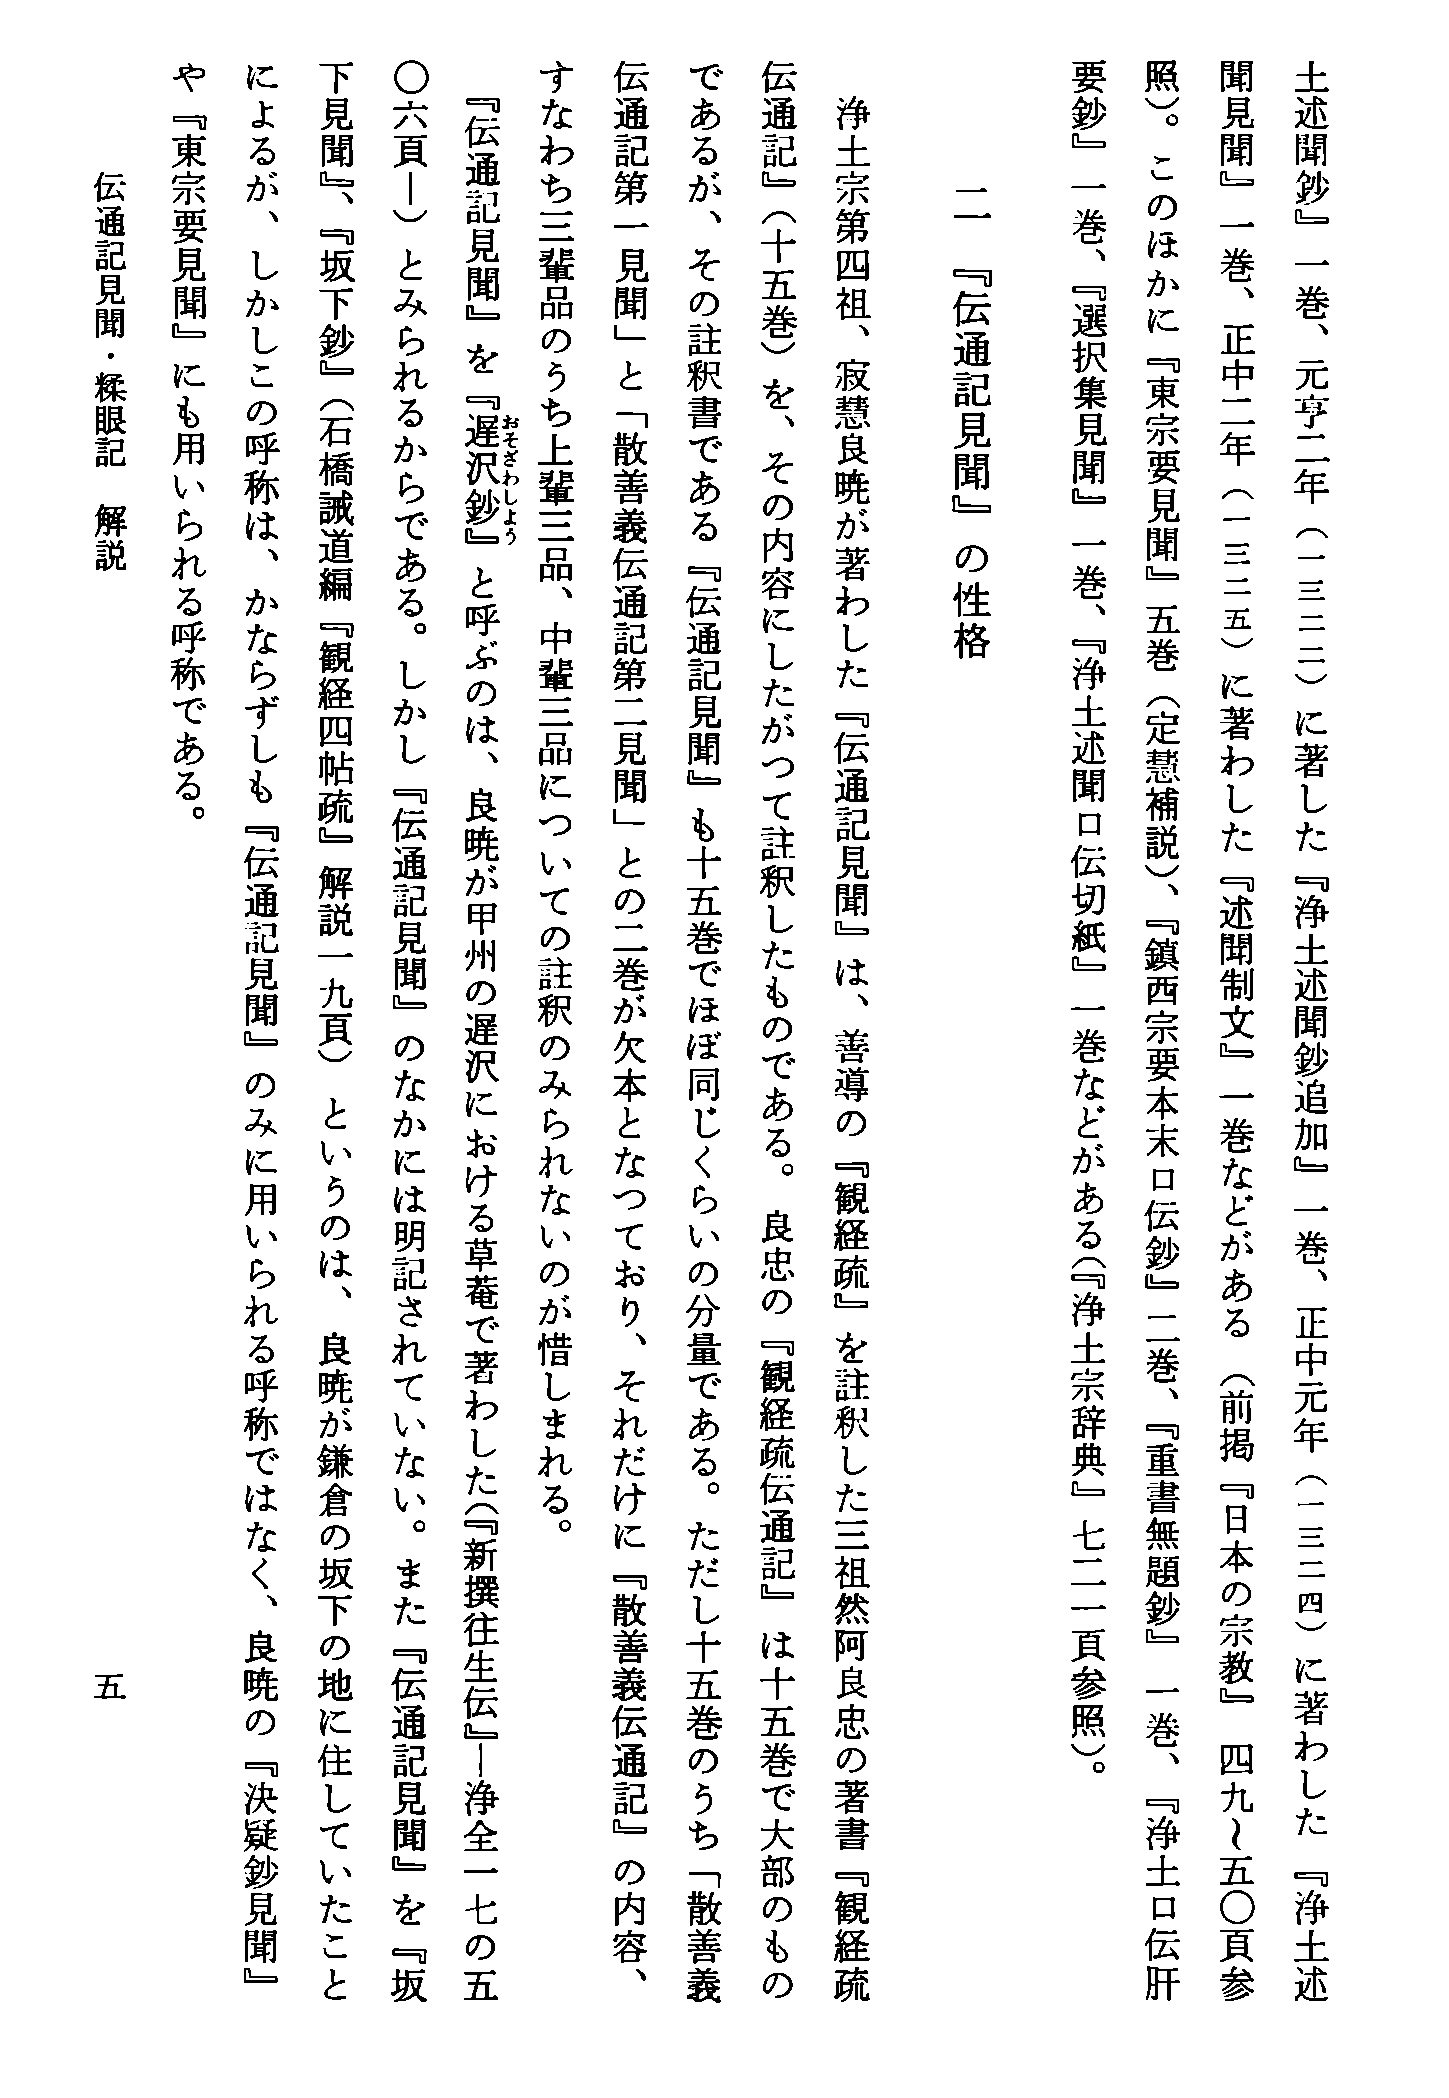 土述聞鈔』一巻、元亨二年（一三二二）に著した『浄土述聞鈔追加』一巻、正中元年（一三二四）に著わした『浄土述
聞見聞』一巻、正中二年（一三二五）に著わした『述聞制文』一巻などがある（前掲『日本の宗教』四九〜五〇頁参
照）。このほかに『東宗要見聞』五巻（定慧補説）、『鎮西宗要本末口伝鈔』二巻、『重書無題鈔』一巻、『浄土口伝肝
要鈔』一巻、『選択集見聞』一巻、『浄土述聞口伝切紙』一巻などがある（『浄土宗辞典』七二一頁参照）。
二　『伝通記見聞』の性格
浄土宗第四祖、寂慧良暁が著わした『伝通記見聞』は、善導の『観経疏』を註釈した三祖然阿良忠の著書『観経疏
伝通記』（十五巻）を、その内容にしたがつて註釈したものである。良忠の『観経疏伝通記』は十五巻で大部のもの
であるが、その註釈書である『伝通記見聞』も十五巻でほぼ同じくらいの分量である。ただし十五巻のうち「散善義
伝通記第一見聞」と「散善義伝通記第二見聞」との二巻が欠本となつており、それだけに『散善義伝通記』の内容、
すなわち三輩品のうち上輩三品、中輩三品についての註釈のみられないのが惜しまれる。
『伝通記見聞』を『遅沢鈔』と呼ぶのは、良暁が甲州の遅沢における草菴で著わした（『新撰往生伝』—浄全一七の五
おそざわしよう
〇六頁—）とみられるからである。しかし『伝通記見聞』のなかには明記されていない。また『伝通記見聞』を『坂
下見聞』、『坂下鈔』（石橋誡道編『観経四帖疏』解説一九頁）というのは、良暁が鎌倉の坂下の地に住していたこと
によるが、しかしこの呼称は、かならずしも『伝通記見聞』のみに用いられる呼称ではなく、良暁の『決疑鈔見聞』
や『東宗要見聞』にも用いられる呼称である。
伝通記見聞・糅眼記　解説
五